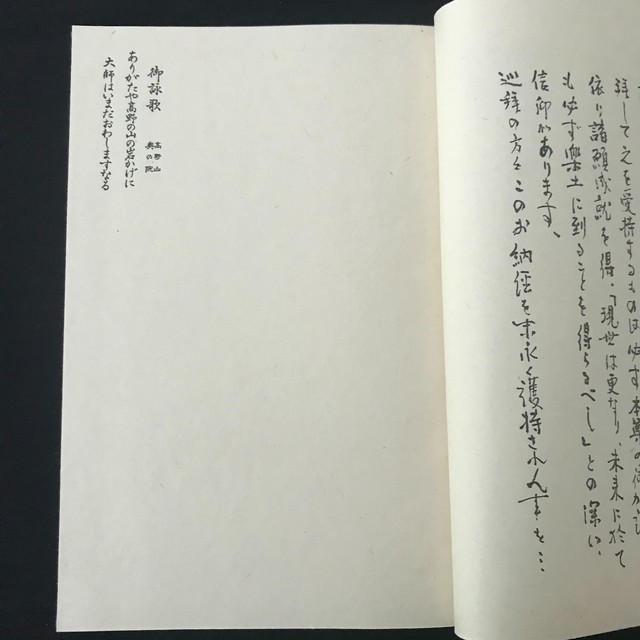 拝して之を受持するものは必ず本尊の
依り諸願成就を得、「現世は更なり、未来に於て
も必ず楽土に到ることを得らるべし」との深い、
信仰があります。
巡拝の方々このお納経を末永く護持されん事を…
御詠歌
高野山
奥の院
ありがたや高野の山の岩かげに
大師はいまだおわしますなる